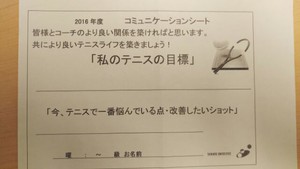 2016 年度 コミュニケーションシート
皆様とコーチのより良い関係を築ければと思います。
共により良いテニスライフを築きましょう！
「私のテニスの目標」
「今、テニスで一番悩んでいる点・改善したいショット」
曜 : ～ 級 お名前